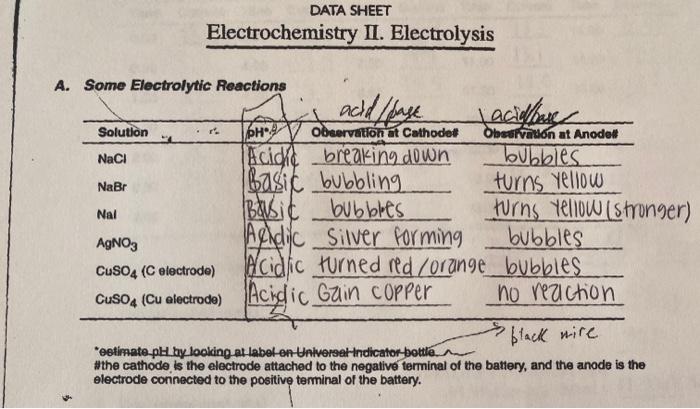 DATA SHEET
Electrochemistry II. Electrolysis
A. Some Electrolytic Reactions
acid/base acid/base
Solution pH* Observation at Cathode# Observation at Anode#
NaCl Acidic breaking down bubbles
NaBr Basic bubbling turns yellow
NaI Basic bubbles turns yellow (stronger)
AgNO3 Acidic silver forming bubbles
CuSO4 (C electrode) Acidic turned red/orange bubbles
CuSO4 (Cu electrode) Acidic Gain copper no reaction
black wire
*estimate pH by looking at label on Universal Indicator bottle
#the cathode is the electrode attached to the negative terminal of the battery, and the anode is the
electrode connected to the positive terminal of the battery.